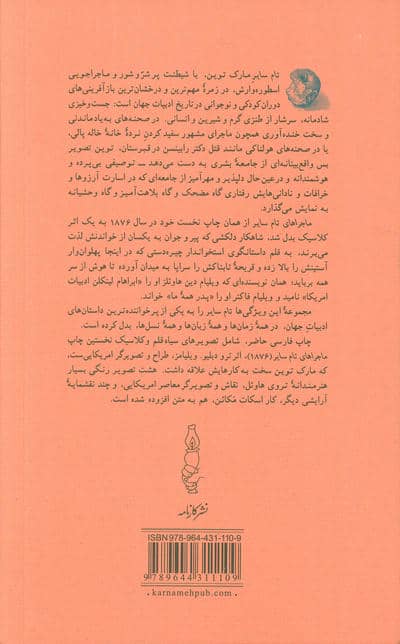 تام سایرِ مارک توین، با شیطنت پرشرّوشور و ماجراجویی
اسطوره‌وارش، در زمرهٔ مهم‌ترین و درخشان‌ترین بازآفرینی‌های
دوران کودکی و نوجوانی در تاریخ ادبیات جهان است: جست‌وخیزی
شادمانه، سرشار از طنزی گرم و شیرین و انسانی. در صحنه‌های به‌یادماندنی
و سخت خنده‌آوری همچون ماجرای مشهور سفید کردن نردهٔ خانهٔ خاله پالی،
یا در صحنه‌های هولناکی مانند قتل دکتر رابینسن در قبرستان، توین تصویر
بس واقع‌بینانه‌ای از جامعهٔ بشری به دست می‌دهد ــ توصیفی بی‌پرده و
هوشمندانه و درعین‌حال دلپذیر و مهرآمیز از جامعه‌ای که در اسارت آرزوها و
خرافات و نادانی‌هایش رفتاری گاه مضحک و گاه بلاهت‌آمیز و گاه وحشیانه
به نمایش می‌گذارد.
ماجراهای تام سایر از همان چاپ نخست خود در سال ۱۸۷۶ به یک اثر
کلاسیک بدل شد، شاهکار دلکشی که پیر و جوان به یکسان از خواندنش لذت
می‌برند، به قلم داستانگوی استخواندار چیره‌دستی که در اینجا پهلوان‌وار
آستینش را بالا زده و قریحهٔ تابناکش را سراپا به میدان آورده تا هوش از سر
همه برباید؛ همان نویسنده‌ای که ویلیام دین هاوئلز او را «ابراهام لینکلن ادبیات
امریکا» نامید و ویلیام فاکنر او را «پدر همهٔ ما» خواند.
مجموعهٔ این ویژگی‌ها تام سایر را به یکی از پرخواننده‌ترین داستان‌های
ادبیاتِ جهان، در همهٔ زمان‌ها و همهٔ زبان‌ها و همهٔ نسل‌ها، بدل کرده است.
چاپ فارسی حاضر، شامل تصویرهای سیاه‌قلم و کلاسیک نخستین چاپ
ماجراهای تام سایر (۱۸۷۶)، اثر ترو دبلیو. ویلیامز، طراح و تصویرگر امریکایی‌ست،
که مارک توین سخت به کارهایش علاقه داشت. هشت تصویر رنگی بسیار
هنرمندانهٔ تروی هاوئل، نقاش و تصویرگر معاصر امریکایی، و چند نقشمایهٔ
آرایشی دیگر، کار اسکات مَکائن، هم به متن افزوده شده است.
نشر کارنامه
ISBN 978-964-431-110-9
9 789644 311109
karnamehpub.com